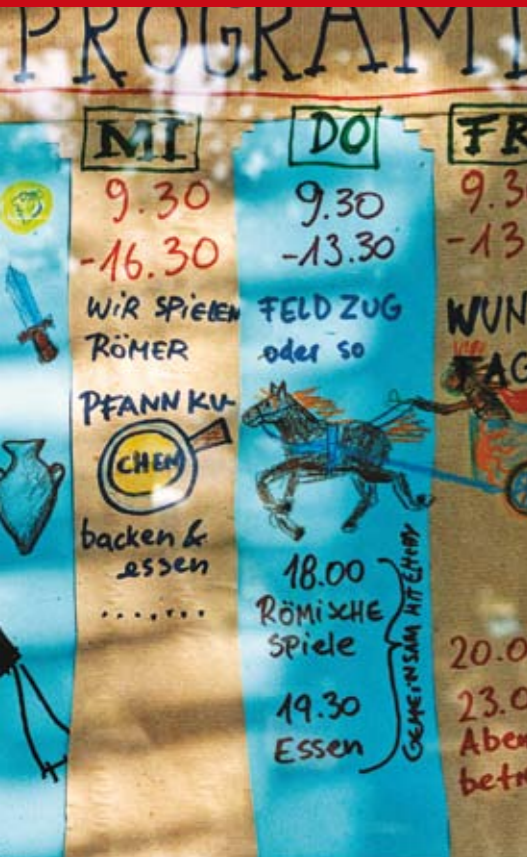 PROGRAM
MI
9.30
-16.30
WIR SPIELEN
RÖMER
PFANNKU-
CHEN
backen &
essen
........
DO
9.30
-13.30
FELDZUG
oder so
18.00
RÖMISCHE
Spiele
19.30
Essen
GEMEINSAM MIT
FR
9.3
-13.
WUN
TAG
20.0
23.0
Aben
betr